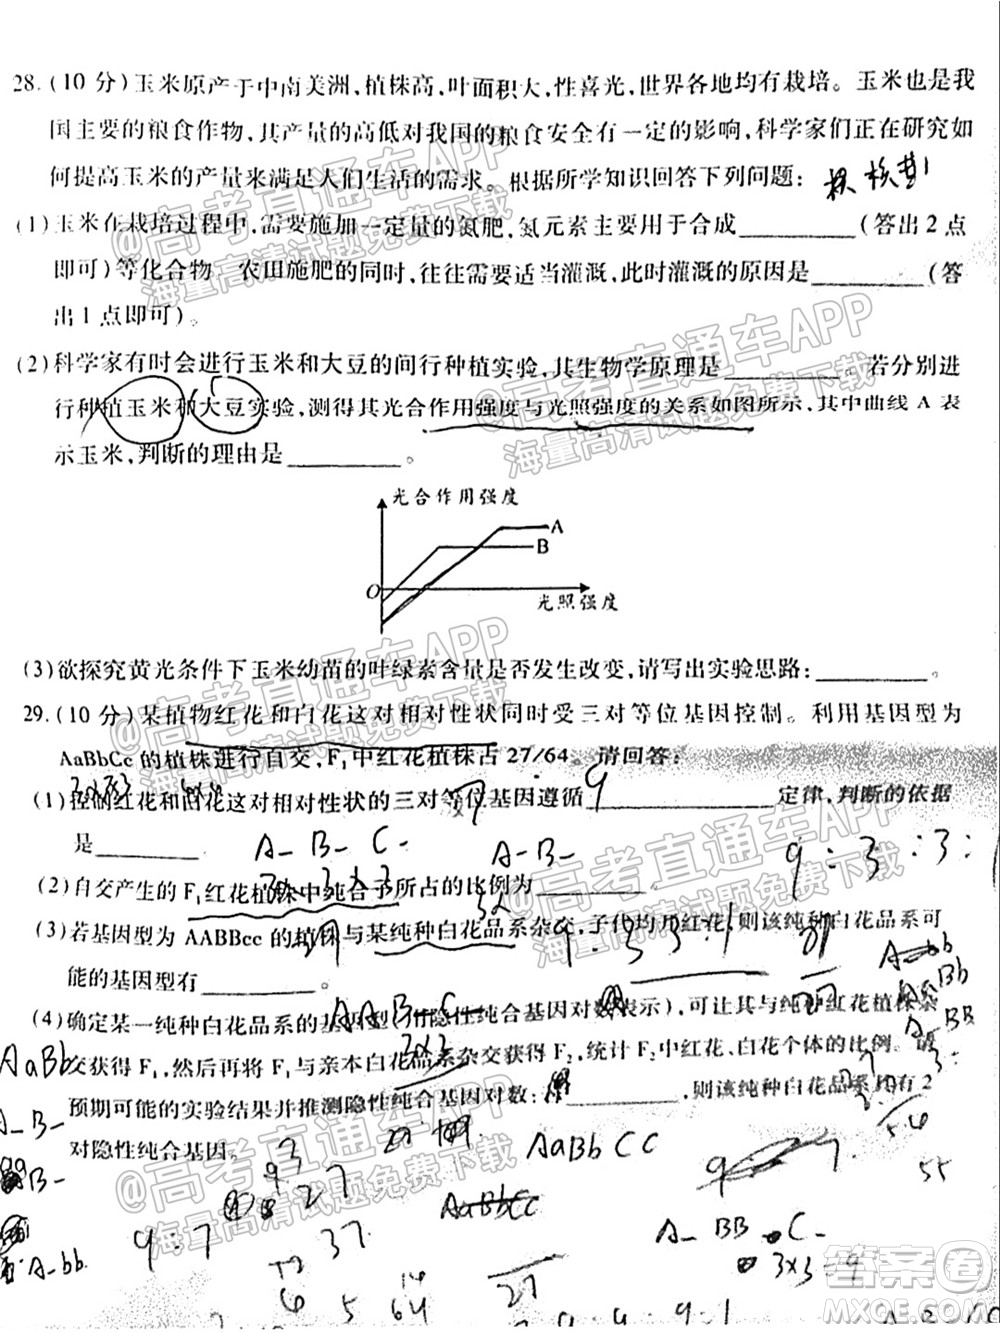 28.(10分)玉米原产于中南美洲,植株高,叶面积大,性喜光,世界各地均有栽培。玉米是我
国主要的粮食作物,其产量的高低对我国的粮食安全有一定的影响,科学家们正在研究如
何提高玉米的产量来满足人们生活的需求。根据所学知识回答下列问题:
(1)玉米在栽培过程中,需要施加一定量的氮肥,氮元素主要用于合成________(答出2点
即可)等化合物 农田施肥的同时,往往需要适当灌溉,此时灌溉的原因是________(答
出1点即可)。
(2)科学家有时会进行玉米和大豆的间行种植实验,其生物学原理是________。若分别进
行种植玉米和大豆实验,测得其光合作用强度与光照强度的关系如图所示,其中曲线A表
示玉米,判断的理由是________。
光合作用强度
A
B
O
光照强度
(3)欲探究黄光条件下玉米幼苗的叶绿素含量是否发生改变,请写出实验思路:________。
29.(10分)某植物红花和白花这对相对性状同时受三对等位基因控制。利用基因型为
AaBbCc的植株进行自交,F₁中红花植株占27/64。请回答:
(1)控制红花和白花这对相对性状的三对等位基因遵循________定律,判断的依据
是________
A_ B_ C_
A_B_
9:3:3:1
(2)自交产生的F₁红花植株中纯合子所占的比例为________。
(3)若基因型为AABBcc的植株与某纯种白花品系杂交,子代均开红花,则该纯种白花品系可
能的基因型有________。
(4)确定某一纯种白花品系的基因型(用隐性纯合基因对数表示),可让其与纯种红花植株杂
交获得F₁,然后再将F₁与亲本白花品系杂交获得F₂,统计F₂中红花、白花个体的比例。请
预期可能的实验结果并推测隐性纯合基因对数:________,则该纯种白花品系均有2
对隐性纯合基因。
AaBb
A_B_
AaBbCC
9:7
27
37
A_bb
A_BB C_
3×3=9
64
27
55
@高考直通车APP
海量高清试题免费下载
@高考直通车APP
海量高清试题免费下载
@高考直通车APP
海量高清试题免费下载
@高考直通车APP
海量高清试题免费下载
@高考直通车APP
海量高清试题免费下载
答案圈
MXQE.COM